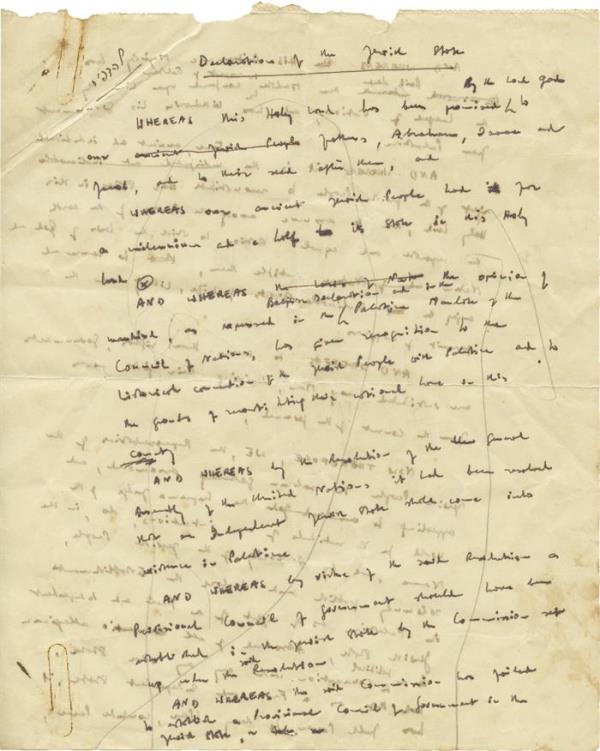 להדפיס
Declaration of the Jewish State
By the Lord God
WHEREAS this Holy Land has been promised to
our ancient Jewish People fathers, Abraham, Isaac and
Jacob, and to their seed after them, and
WHEREAS our ancient Jewish People had for
a millennium and a half its State in this Holy
Land
AND WHEREAS the of the opinion of
Balfour Declaration and in the
mankind, as expressed in the Palestine Mandate of the
Council of Nations, has given recognition to the
historical connection of the Jewish People with Palestine and to
the grounds of reconstituting their national home in this
Country
AND WHEREAS by the Resolution of the General
Assembly of the United Nations it had been resolved
that an Independent Jewish State shall come into
existence in Palestine
AND WHEREAS by virtue of the said Resolution a
Provisional Council of government should have been
established in the Jewish State by the Commission set
up under the said Resolution
AND WHEREAS the said Commission has failed
to establish a Provisional Council of Government in the
Jewish State,